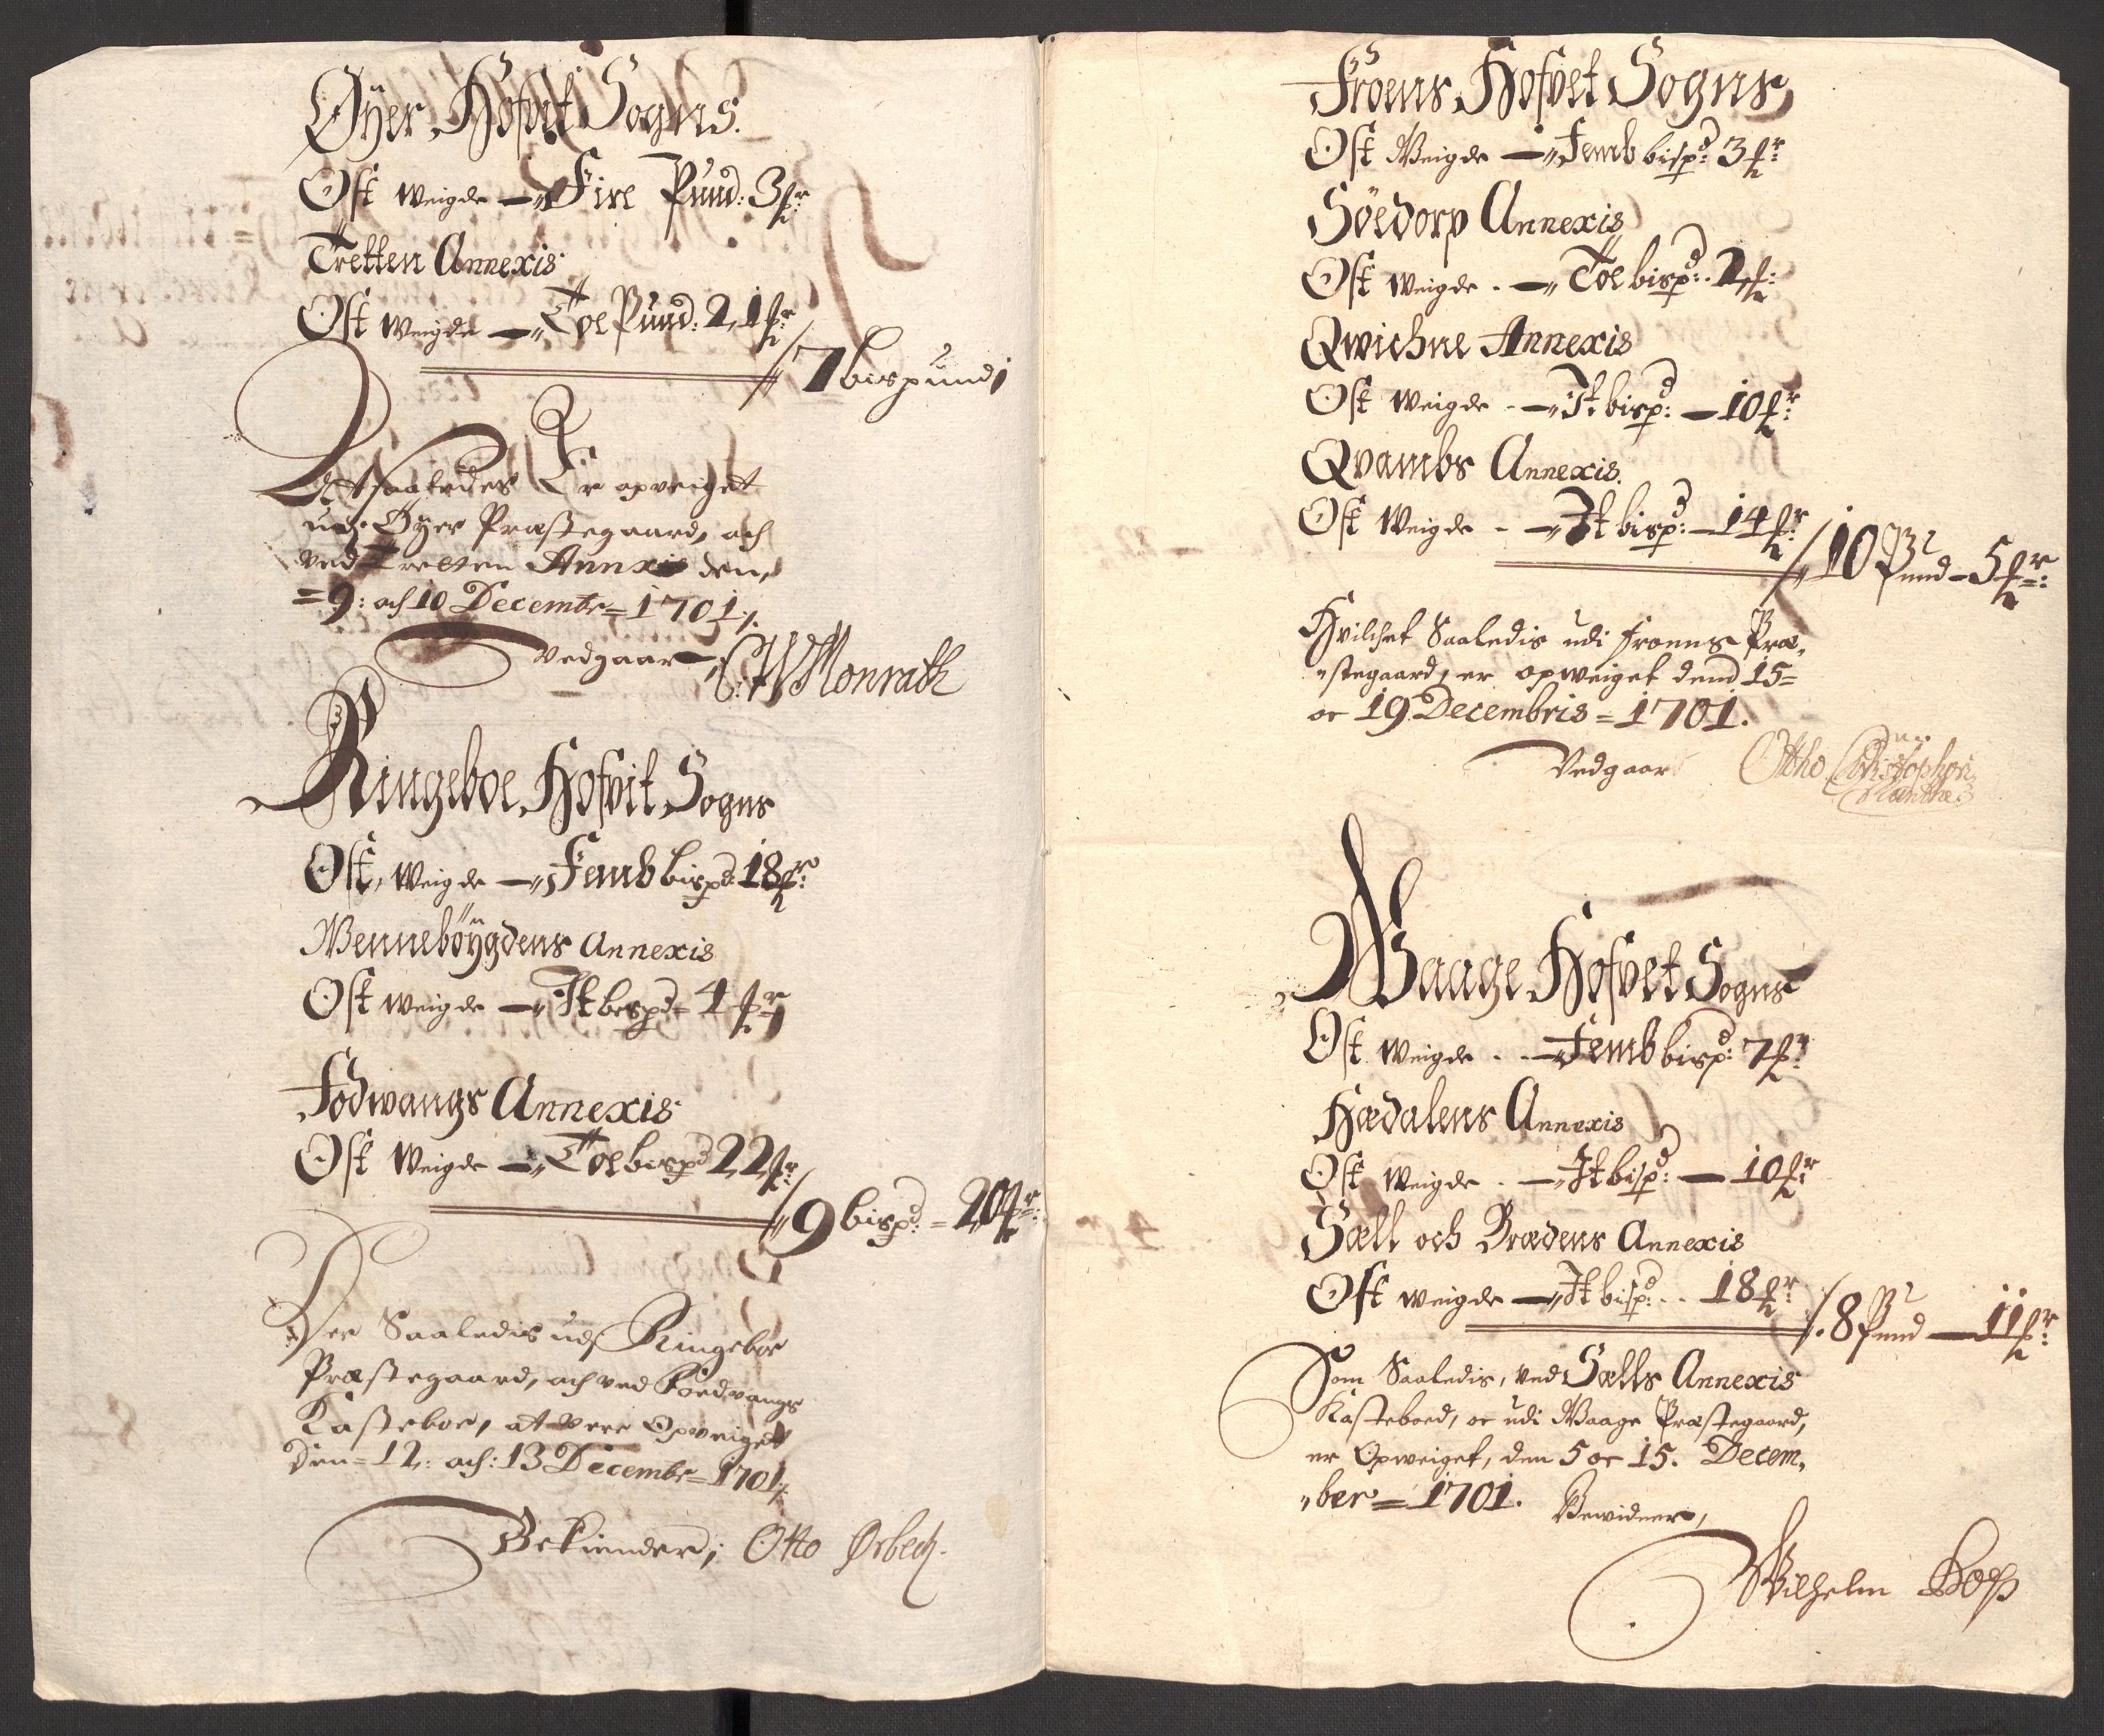 Øÿer Hofvit Sogns.
Ost Weigde — Fire Pund: 3 fr:
Tretten Annexis
Ost Weigde — Toe Pund: 21 fr
7 bispund
At saaledes Er opveiget
udj Øÿer Præstegaard, och
ved Tretten Annexis den,
=9: och 10 Decembr= 1701
Vedgaar
C: W Monrath
Ringeboe Hofvit Sogns
Ost, Weigde — Femb bispd 18 fr:
Wennebøÿgdens Annexis
Ost Weigde — It bispd= 4 fr
Fodwangs Annexis
Ost Weigde — Toe bispd 22 fr:
9 bispd: = 20 fr:
Saaledis udj Ringeboe
Præstegaard, och ved Fodvangs
Kasteboe, at vere Opveiget
Den= 12: och: 13 Decembr= 1701
Bekiender; Otto Ørbech.
Froens Hofvet Sogns
Ost Weigde — Femb bispd: 3 fr:
Söedorp Annexis
Ost Weigde . — Toe bispd: . 2 fr:
Qwichne Annexis
Ost Weigde . — It bispd: — 10 fr
Qvambs Annexis.
Ost Weigde - — It bispd: — 14 fr
10 Bis Pund — 5 fr:
Hvilchet Saaledis udi Froens Præ,
„stegaard, er opweiget dend 15=
oc 19 Decembris = 1701.
Vedgaar Otho Christophersen
Waage Hofvet Sogns
Ost Weigde . — Femb bispd: 7 fr
Hædalens Annexis
Ost Weigde . — It bispd: — 10 fr
Sæll och Brædens Annexis
Ost Weigde — It bispd: . . 18 fr:
8 Bis Pund — 11 fr:
Som Saaledis, ved Sælls Annexis
Kasteboed, oc udi Waage Præstegaard,
er Opweiget, den 5 oc 15. Decem,
„ber = 1701. Bewidner,
Wilhelm Bop